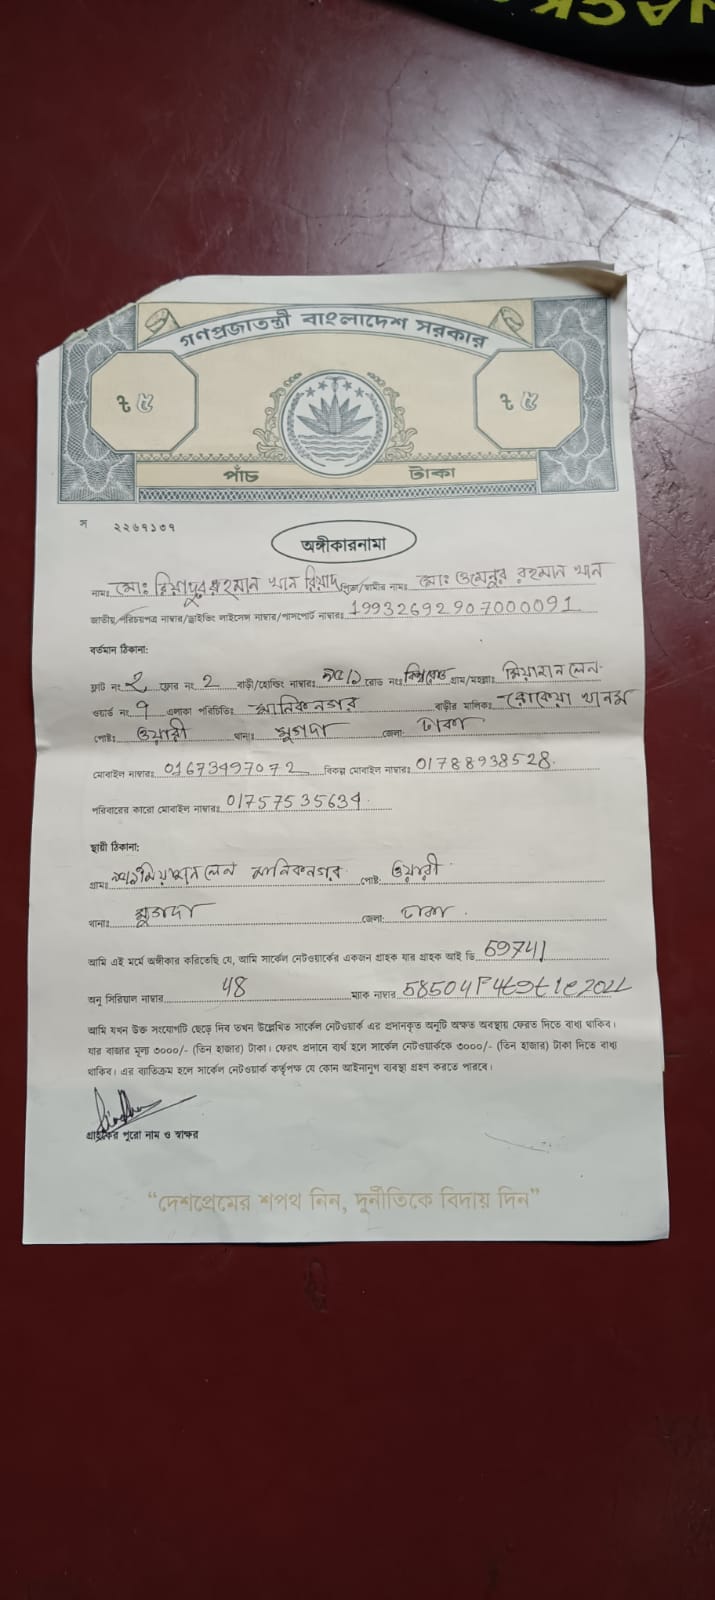 গণপ্রজাতন্ত্রী বাংলাদেশ সরকার
৳ ৫ ৳ ৫
পাঁচ টাকা
স ২২৬৭১৩৭
অঙ্গীকারনামা
নামঃ মোঃ রহমান খান রিয়াদ পিতা/স্বামীর নামঃ মোঃ রহমান খান
জাতীয় পরিচয়পত্র নাম্বার/ড্রাইভিং লাইসেন্স নাম্বার/পাসপোর্ট নাম্বারঃ 19932692907000091
বর্তমান ঠিকানা:
ফ্লাট নং 2 ফ্লোর নং 2 বাড়ী/হোল্ডিং নাম্বারঃ রোড নংঃ গ্রাম/মহল্লাঃ মিয়াজান লেন
ওয়ার্ড নং 7 এলাকা পরিচিতিঃ মানিকনগর বাড়ীর মালিকঃ রোকেয়া খানম
পোষ্টঃ ওয়ারী থানাঃ মুগদা জেলাঃ ঢাকা
মোবাইল নাম্বারঃ 01673497072 বিকল্প মোবাইল নাম্বারঃ 01788938528
পরিবারের কারো মোবাইল নাম্বারঃ 01757535634
স্থায়ী ঠিকানা:
গ্রামঃ মিয়াজান লেন মানিকনগর পোষ্টঃ ওয়ারী
থানাঃ মুগদা জেলা: ঢাকা
আমি এই মর্মে অঙ্গীকার করিতেছি যে, আমি সার্কেল নেটওয়ার্কের একজন গ্রাহক যার গ্রাহক আই ডি 59741
অনু সিরিয়াল নাম্বার 48 ম্যাক নাম্বার
আমি যখন উক্ত সংযোগটি ছেড়ে দিব তখন উল্লেখিত সার্কেল নেটওয়ার্ক এর প্রদানকৃত অনুটি অক্ষত অবস্থায় ফেরত দিতে বাধ্য থাকিব।
যার বাজার মূল্য ৩০০০/- (তিন হাজার) টাকা। ফেরৎ প্রদানে ব্যর্থ হলে সার্কেল নেটওয়ার্ককে ৩০০০/- (তিন হাজার) টাকা দিতে বাধ্য
থাকিব। এর ব্যতিক্রম হলে সার্কেল নেটওয়ার্ক কর্তৃপক্ষ যে কোন আইনানুগ ব্যবস্থা গ্রহণ করতে পারবে।
গ্রাহকের পুরো নাম ও স্বাক্ষর
“দেশপ্রেমের শপথ নিন, দুর্নীতিকে বিদায় দিন”